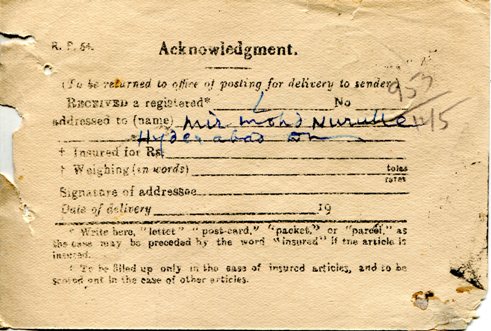 R. P. 54.
Acknowledgment.
(To be returned to office of posting for delivery to sender)
RECEIVED a registered* No 953
addressed to (name) Mir Mohd Nurulla 11/5
Hyderabad Dn
† Insured for Rs.
† Weighing (in words) tolas
rates
Signature of addressee
Date of delivery 19
* Write here, "letter" "post-card," "packet," or "parcel," as
the case may be preceded by the word "insured" if the article is
insured.
† To be filled up only in the case of insured articles, and to be
scored out in the case of other articles.